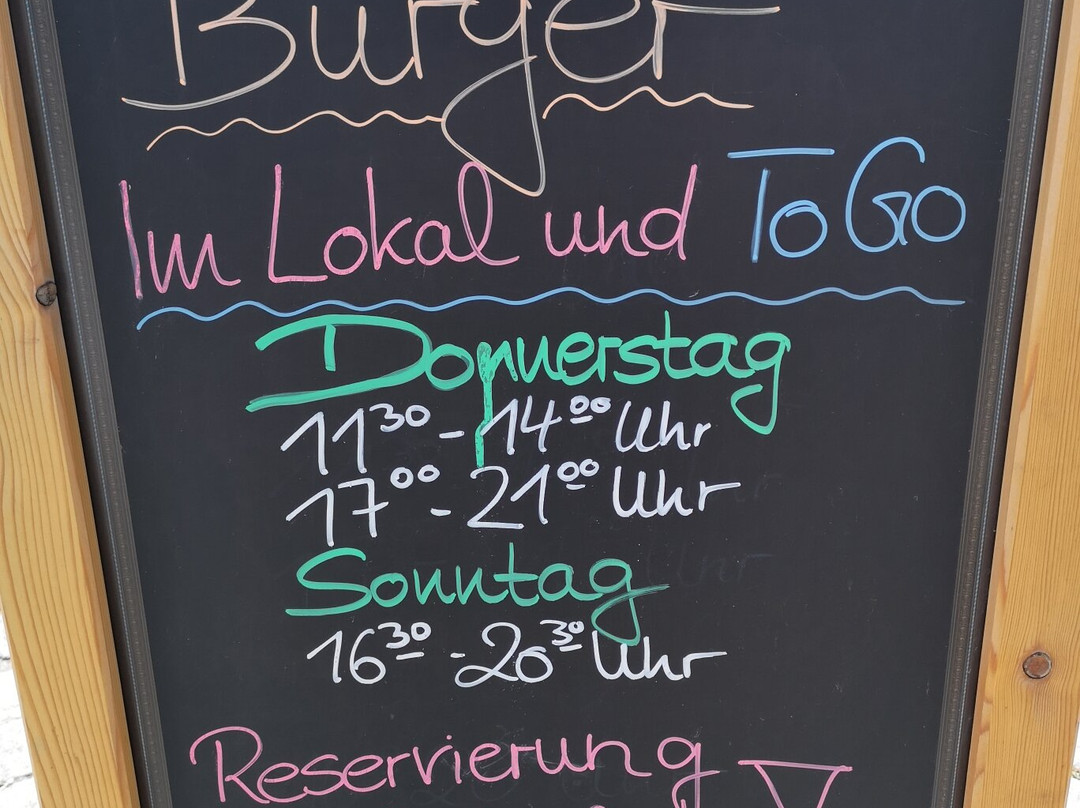 Burger
Im Lokal und To Go
Donnerstag
11³⁰ - 14⁰⁰ Uhr
17⁰⁰ - 21⁰⁰ Uhr
Sonntag
16³⁰ - 20³⁰ Uhr
Reservierung